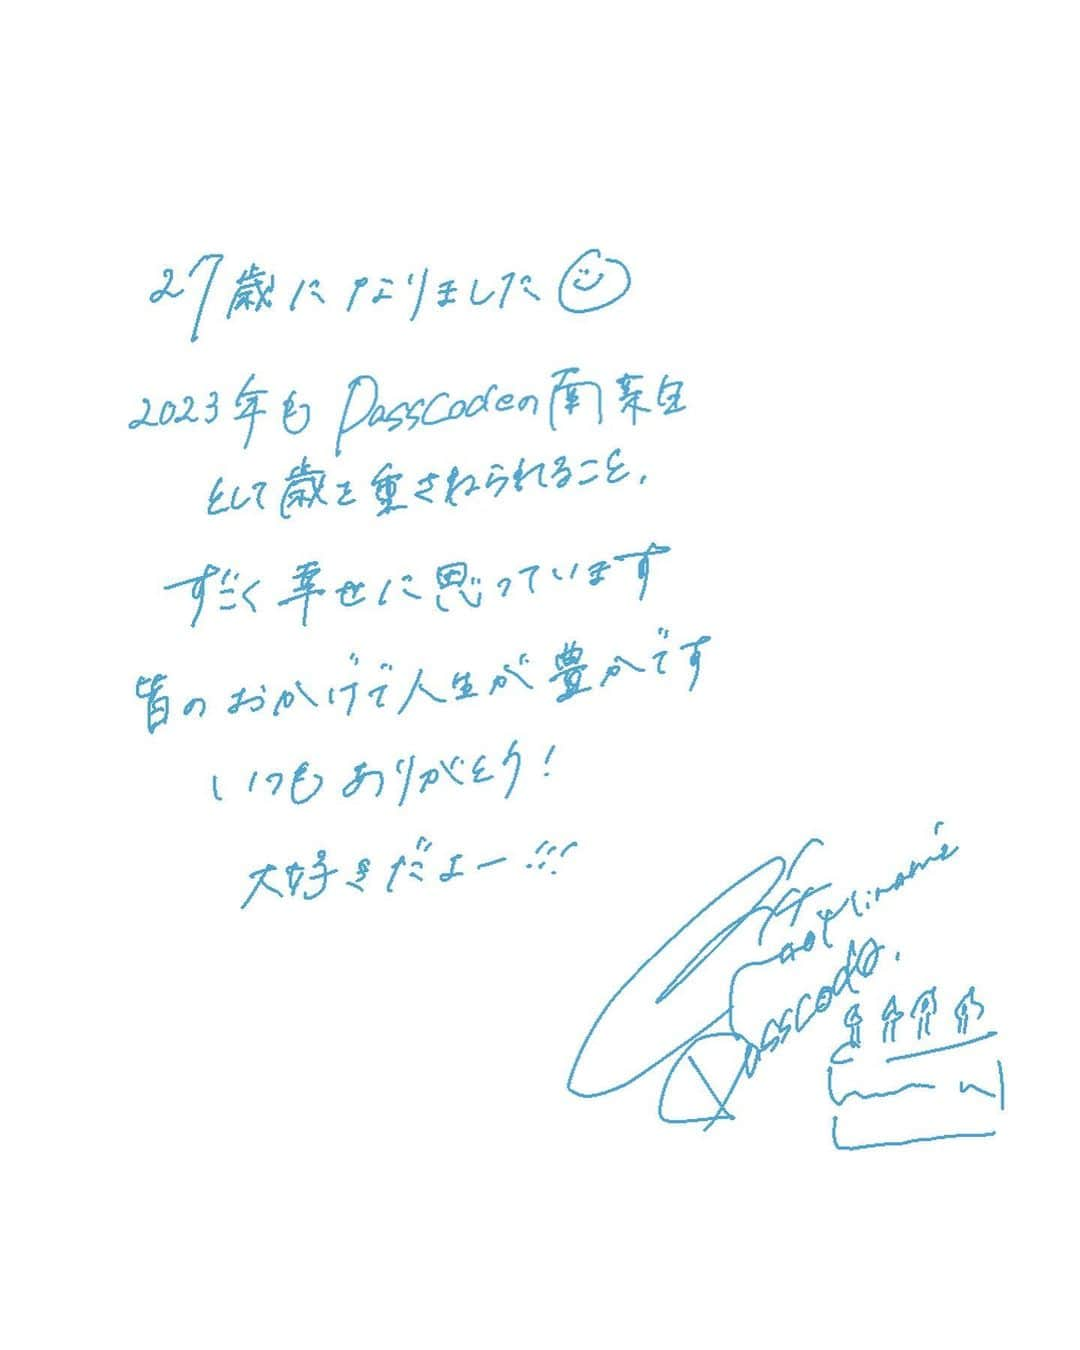 27歳になりました
2023年も PassCodeの南菜生
として歳を重さねられること、
すごく幸せに思っています
皆のおかげで人生が豊かです
いつもありがとう!
大好きだよー!!!
Passcode.